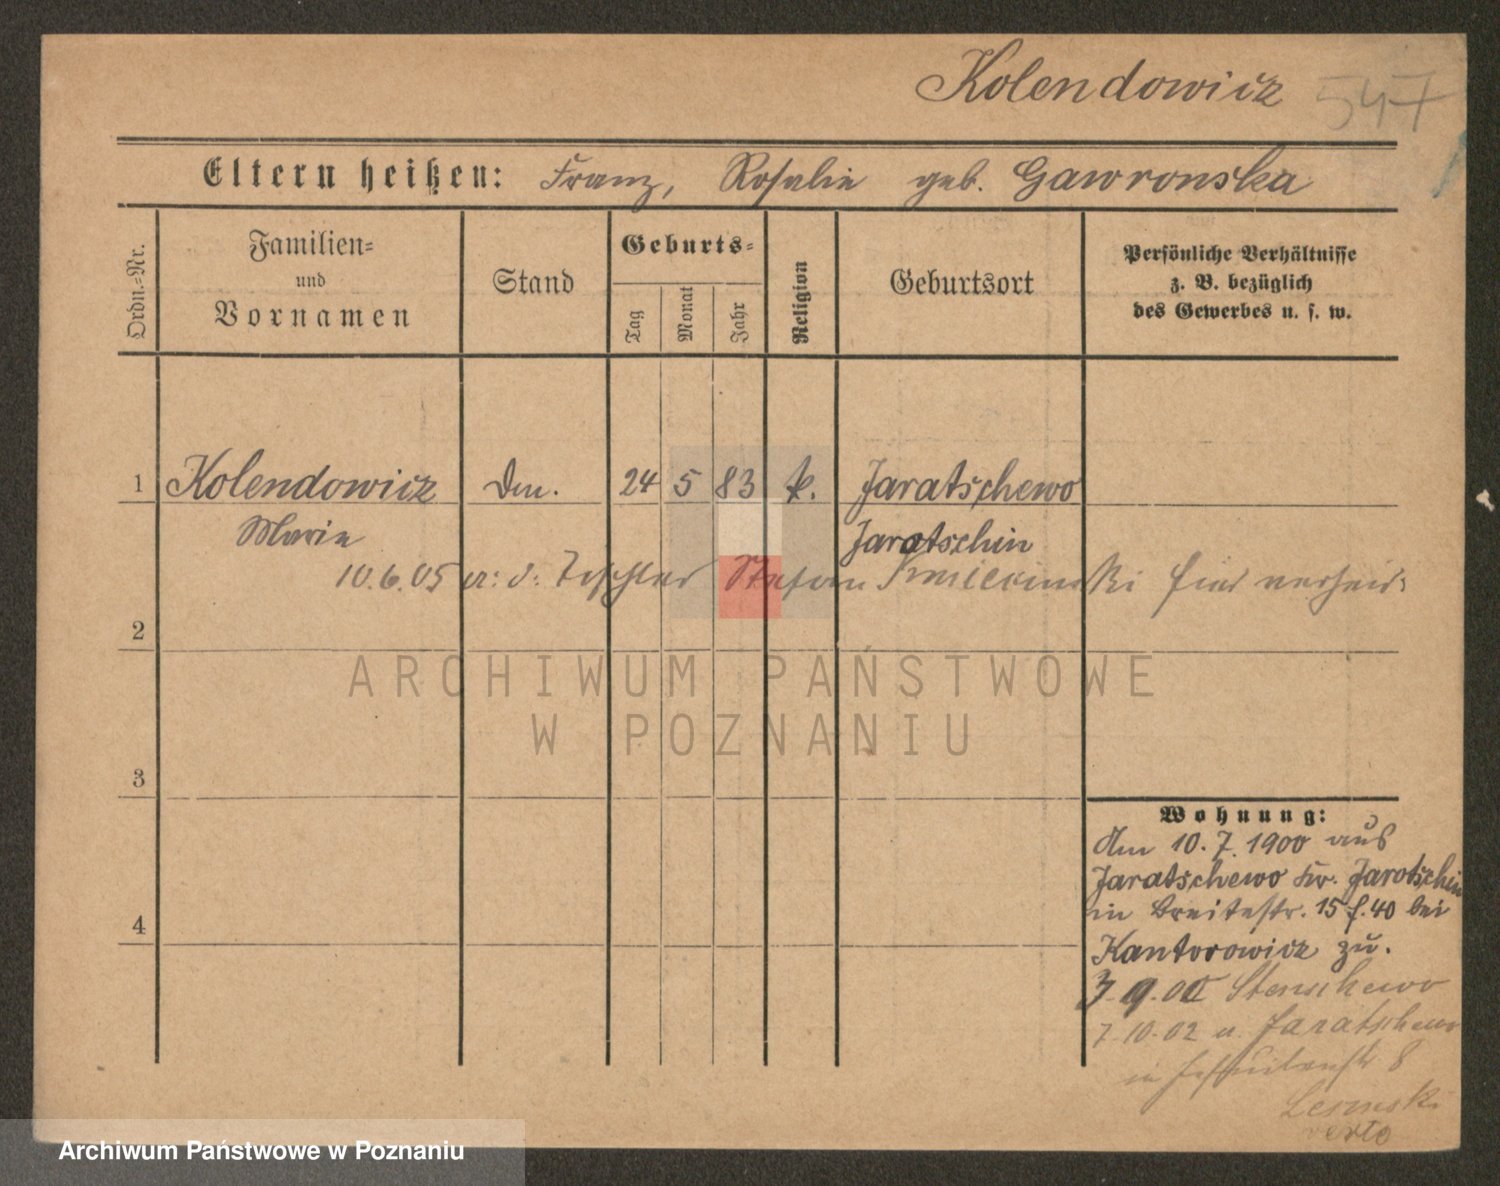 Kolendowicz 547
Eltern heißen: Franz, Rosalie geb. Gawronska
Ordn.-Nr.
Familien-
und
Vornamen
Stand
Geburts-
Tag
Monat
Jahr
Religion
Geburtsort
Persönliche Verhältnisse
z. B. bezüglich
des Gewerbes u. s. w.
1 Kolendowicz 24 5 83 k. Jaratschewo
Marie Jarotschin
10.6.05 Stefan
2
3
4
Wohnung:
Am 10. 7. 1900 aus
Jaratschewo Kr. Jarotschin
in Breitestr. 15 f. 40 bei
Kantorowicz zu.
Stenschewo
7.10.02 Jaratschewo
in 8
verte
ARCHIWUM PAŃSTWOWE
W POZNANIU
Archiwum Państwowe w Poznaniu